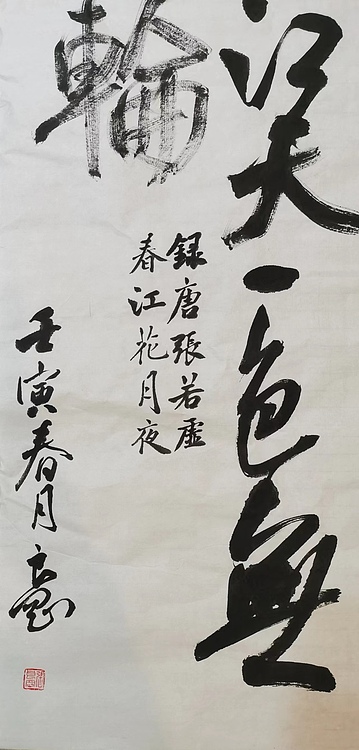 江天一色無
輪
錄唐張若虛
春江花月夜
壬寅春月